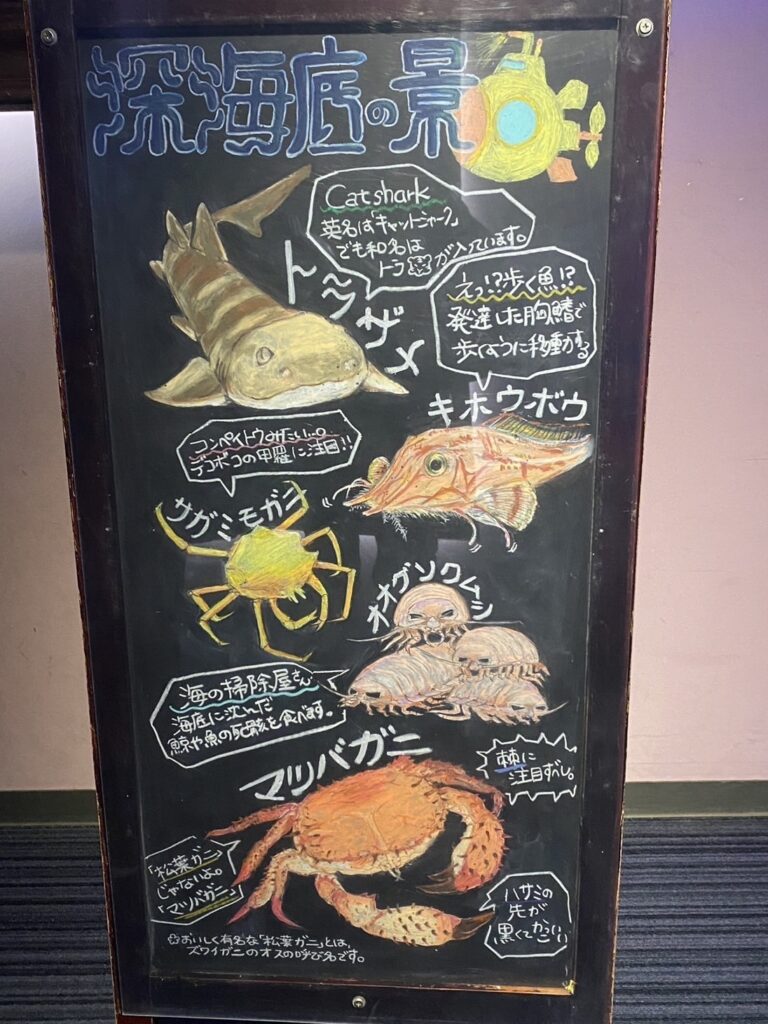 深海底の景
Catshark
英名は「キャットシャーク」
でも和名は
トラ が入っています。
トラザメ
えっ!?歩く魚!?
発達した胸鰭で
歩くように移動する
キホウボウ
コンペイトウみたい…。
デコボコの甲羅に注目!!
サガミモガニ
オオグソクムシ
海の掃除屋さん
海底に沈んだ
鯨や魚の死骸を食べます。
マツバガニ
棘に
注目ずべし。
「松葉ガニ」
じゃないよ。
「マツバガニ」
ハサミの
先が
黒くてかっこいい
おいしく有名な「松葉ガニ」とは、
ズワイガニのオスの呼び名です。